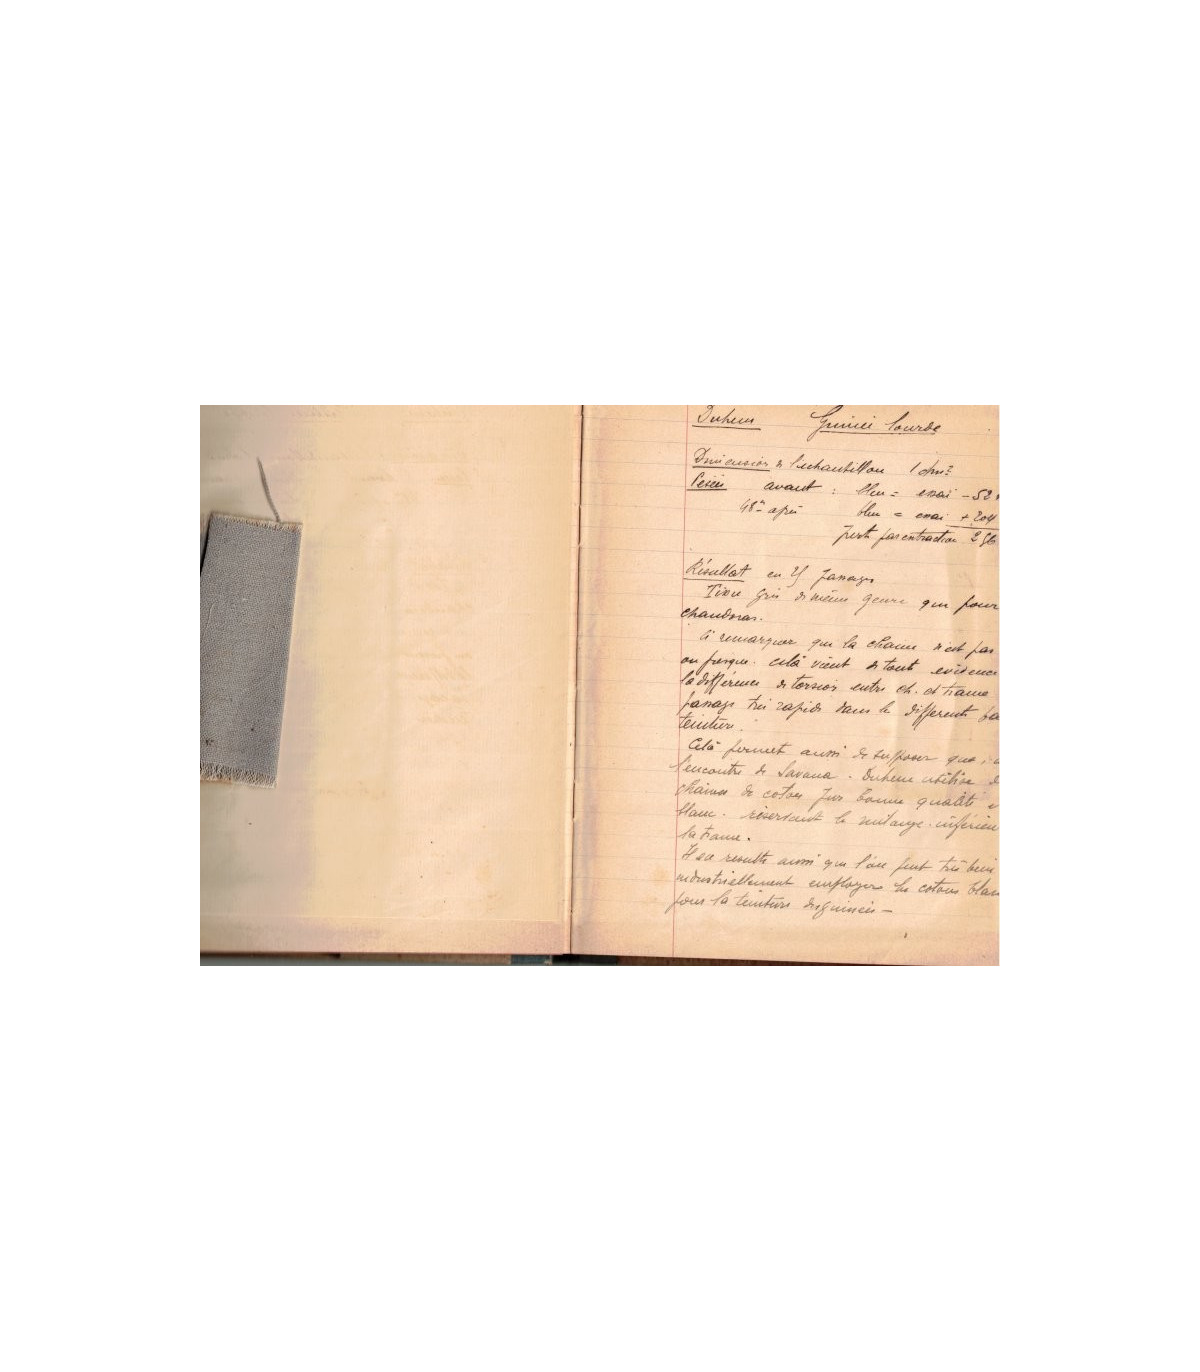 Duhem Guinée lourde
Dimension de l'échantillon 1 dm²
Pesées avant : bleu = essai - 52
48h après bleu = essai + 204
perte par extraction 256
Résultat en 25 passages
Tissu gris de même genre que pour
chandoras.
à remarquer que la chaine n'est pas
ou presque. celà vient de tout evidence
la différence de torsion entre ch. et trame
passage très rapide dans le différents
teinture.
Celà permet aussi de supposer que
l'encontre de Savana. Duhem utilise
chaines de coton pur bonne qualité
blanc. réservant le mélange inférieur
la trame.
Il en resulte aussi que l'on peut très bien
industriellement employer les cotons blan
pour la teinture des guinées —